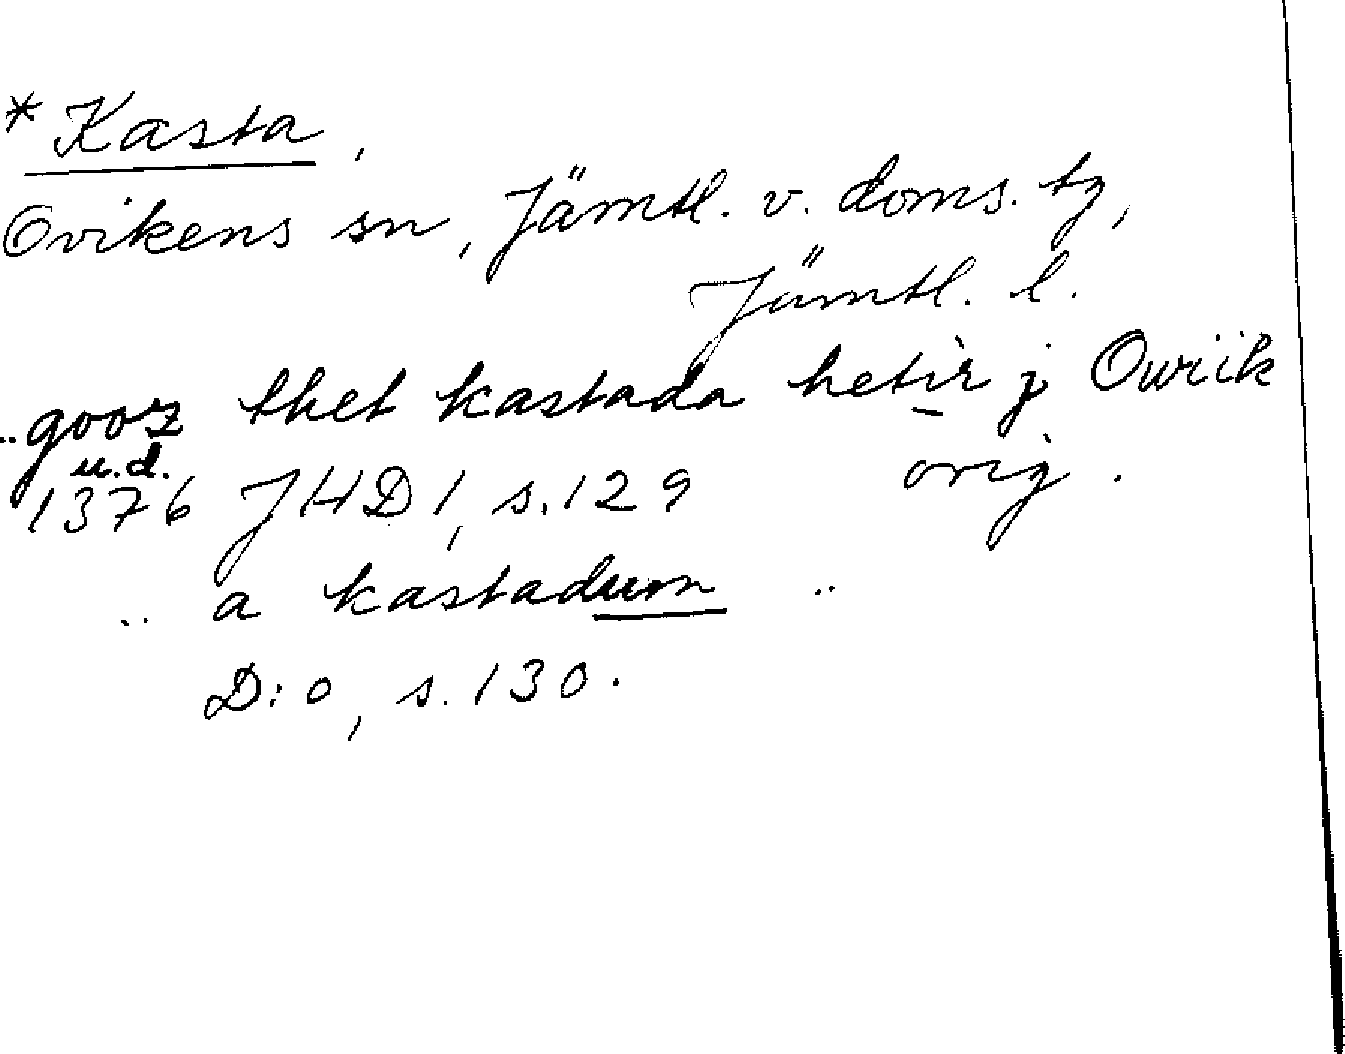 * Kasta,
Ovikens sn, Jämtl. v. doms. tg,
Jämtl. l.
..gooz thet kastada hetir j Owiik
u.d.
1376 JHD 1, s. 129 orig.
.. a kastadum ..
D:o, s. 130.